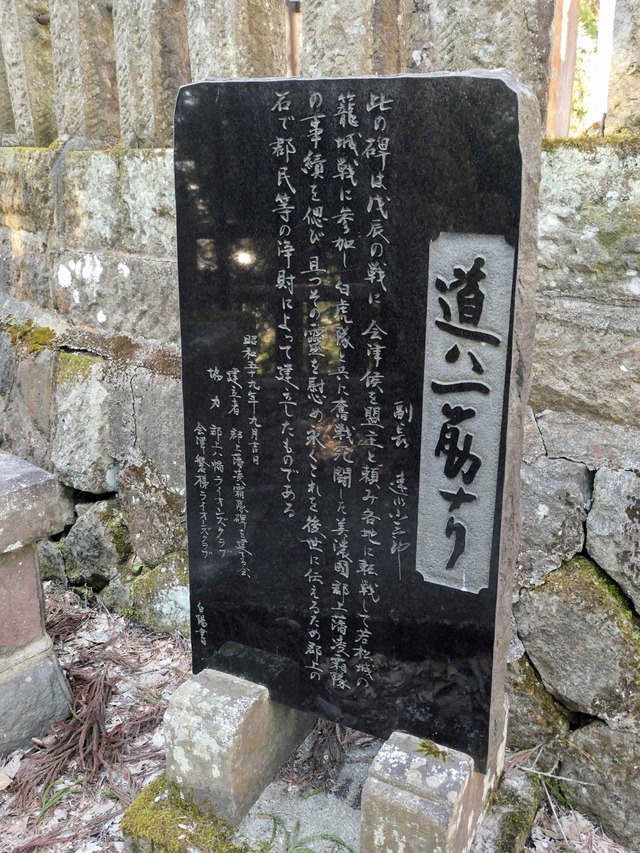 道は一筋なり
副長 速水小三郎
此の碑は戊辰の戦に 会津侯を盟主と頼み各地に転戦して若松城の
籠城戦に参加し白虎隊と共に奮戦死闘した美濃國郡上藩凌霜隊
の事績を偲び 且つその靈を慰め永くこれを後世に伝えるため郡上の
石で郡民等の浄財によって建立したものである
昭和五十九年九月吉日
建立者 郡上藩凌霜隊碑を建る会
協力 郡上八幡ライオンズクラブ
会津鶴勝ライオンズクラブ